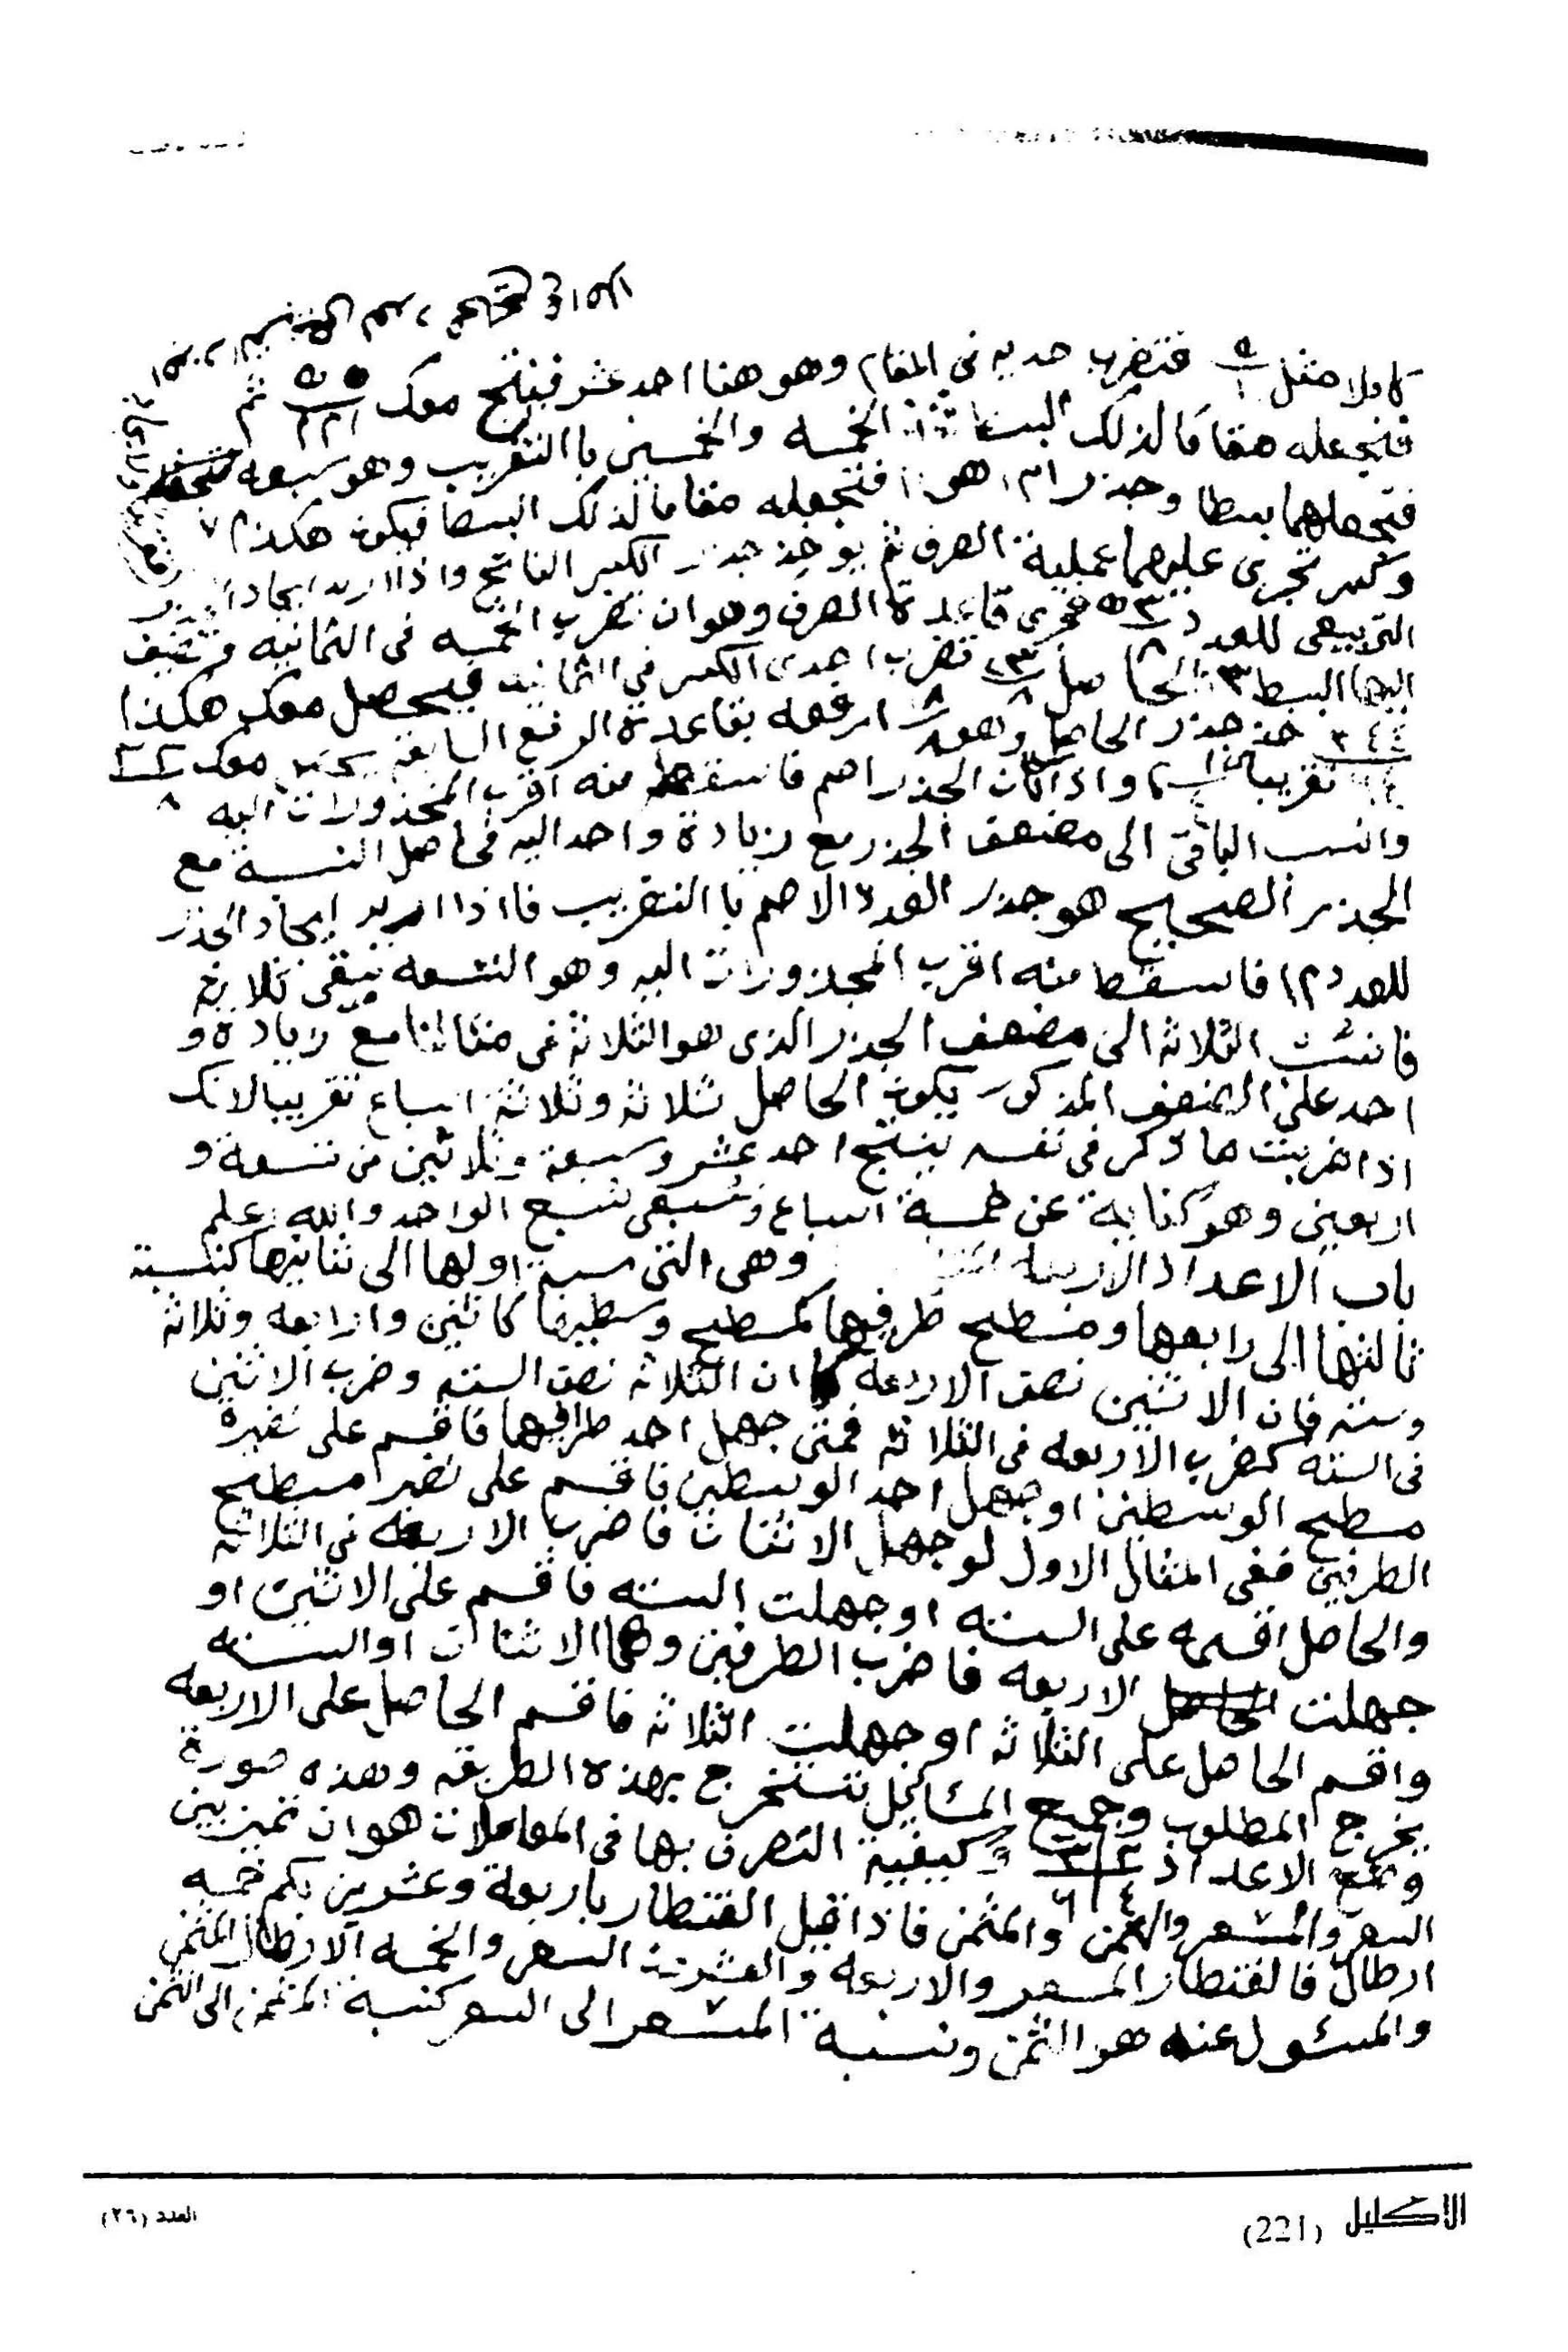 كاملا مثل فتضرب حديه في المقام وهو هنا احد عشر فينتج معك ٥٥ ١٢١ ثم
فتجعله مقاما لذلك البسط الخمسه والخمسين باالتقريب وهو سبعه
فتجعلهما بسطا وجذر ١٢١ هو ١١ فتجعله مقاما لذلك البسط فيكون هكذا
وكسر تجري عليهما عملية الصرف ثم يوخذ جذر الكسر الناتج واذا اريد ايجاد
التربيعي للعدد ٥ ٣ ٨ فجرى قاعدة الصرف وهو ان تضرب الخمسه فى الثمانيه وتضيف
اليها البسط ٣ الحاصل ٤٣ ٨ تضرب احدى الكسر في الثمانيه فيحصل معك هكذا
٣٤٤ خذ جذر الحاصل وهو ارفعه بقاعدة الرفع السابقه معك
تقريبا واذا كان الجذر اصم فاسقط منه اقرب المجذورات اليه
وانسب الباقى الى مضعف الجذر مع زيادة واحد اليه فحاصل النسبة مع
الجذر الصحيح هو جذر العدد الاصم باالتقريب فاذا اريد ايجاد الجذر
للعدد ١٢ فاسقط منه اقرب المجذورات اليه وهو التسعه يبقى ثلاثة
فانسب الثلاثه الى مضعف الجذر الذى هو الثلاثة فى مثالنا مع زيادة و
احد على الضعف المذكور يكون الحاصل ثلاثة وثلاثة اسباع تقريبا لانك
اذا ضربت ما ذكر فى نفسه ينتج احد عشر وسبعة وثلاثين من تسعة و
اربعين وهو كناية عن خمسة اسباع وسبعى سبع الواحد والله اعلم
باب الاعداد الاربعه وهى التى نسبة اولها الى ثانيها كنسبة
ثالثها الى رابعها ومسطح طرفيها كمسطح وسطيها كاثنين واربعه وثلاثة
وسته فان الاثنين نصف الاربعه كما ان الثلاثه نصف السته وضرب الاثنين
فى السته كضرب الاربعه فى الثلاثه فمتى جهل احد طرفيها فاقسم على نضيره
مسطح الوسطين او جهل احد الوسطين فاقسم على نضيره مسطح
الطرفين ففى المثال الاول لو جهل الاثنان فاضرب الاربعه فى الثلاثه
والحاصل اقسمه على السته او جهلت السته فاقسم على الاثنين او
جهلت الاربعه فاضرب الطرفين وهما الاثنان والسته
واقسم الحاصل على الثلاثه او جهلت الثلاثه فاقسم الحاصل على الاربعه
يخرج المطلوب وجميع المسائل تستخرج بهذه الطريقه وهذه صورة
وضع الاعداد ٢ ٣ ٤ ٦ وكيفية التصرف بها فى المعاملات هو ان تميز بين
السعر والمسعر والثمن والمثمن فاذا قيل القنطار باربعة وعشرين بكم خمسه
ارطال فالقنطار المسعر والاربعه والعشرين السعر والخمسه الارطال المثمن
والمسئول عنه هو الثمن ونسبة المسعر الى السعر كنسبة المثمن الى الثمن
الاكليل (221)
العدد (٢٦)